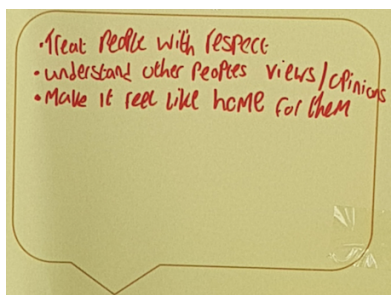 • Treat People with respect
• understand other Peoples views/opinions
• Make it feel like home for them